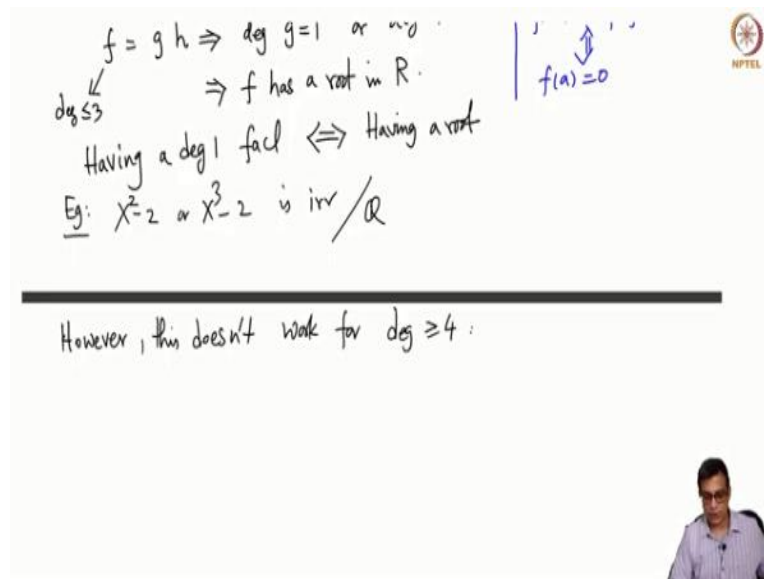 f = g h ⇒ deg g=1 or
deg ≤3
⇒ f has a root in R.
f(a)=0
Having a deg 1 fact ⇔ Having a root
Eg: X²-2 or X³-2 is irr / Q
However, this doesn't work for deg ≥4:
NPTEL